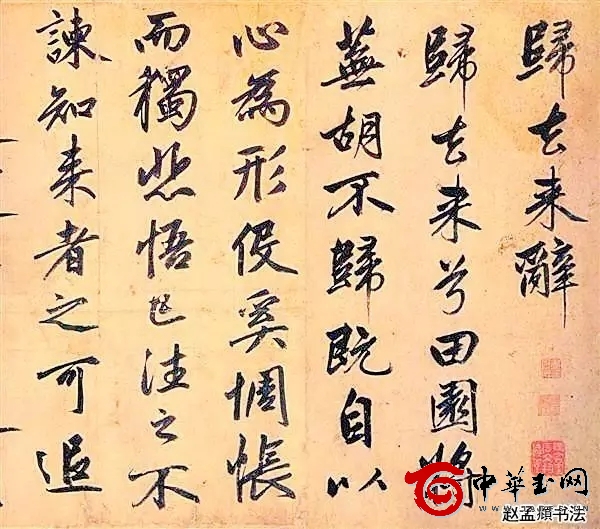 歸去来辭
歸去来兮田園將
蕪胡不歸既自以
心為形役奚惆悵
而獨悲悟已往之不
諫知来者之可追
中华玉网
赵孟頫书法